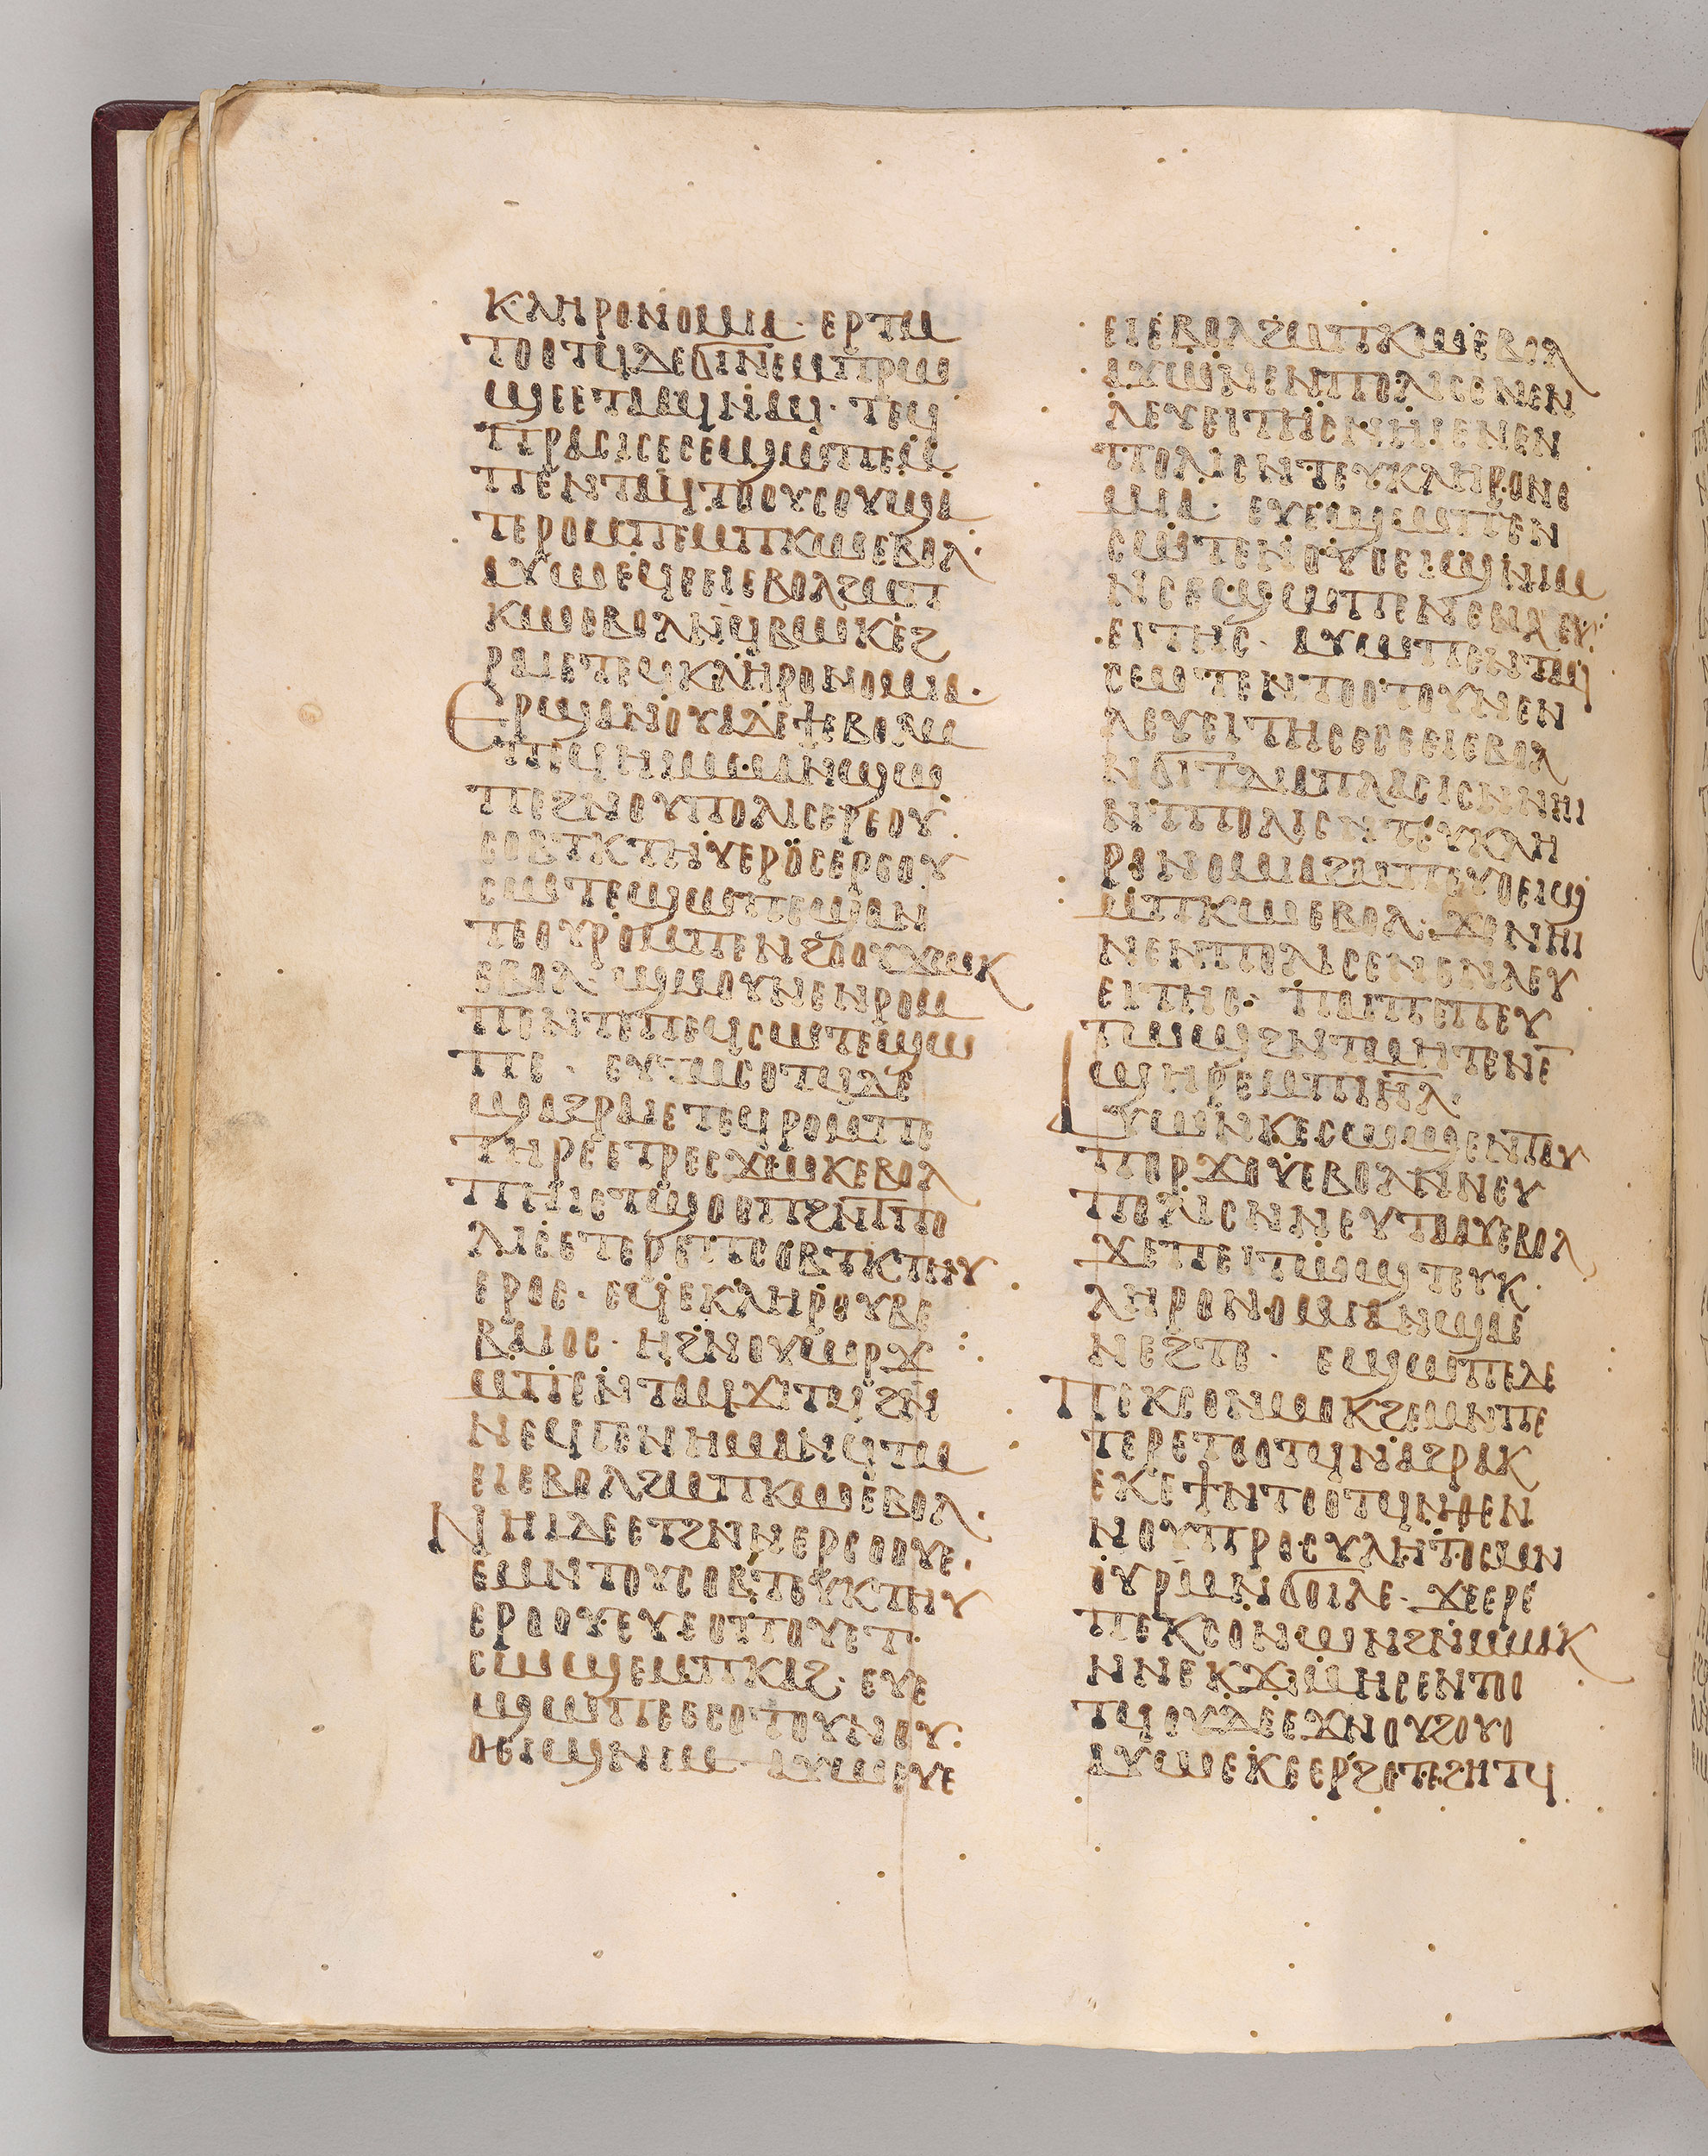 ⲕⲗⲏⲣⲟⲛⲟⲙⲓⲁ· ⲉⲣⲧⲙ
ⲧⲟⲟⲧϥⲇⲉϭⲓⲛⲉⲙⲡⲣⲱ
ϣⲉⲉⲧⲁⲁϥⲛⲁϥ· ⲧⲉϥ
ⲡⲣⲁⲥⲓⲥⲉⲥⲉϣⲱⲡⲉⲙ
ⲡⲉⲛⲧⲁϥⲧⲟⲟⲩⲥⲟⲩϣⲁ
ⲧⲉⲣⲟⲙⲡⲉⲙⲡⲕⲱⲉⲃⲟⲗ·
ⲁⲩⲱⲉϥⲉⲉⲓⲉⲃⲟⲗϩⲙⲡ
ⲕⲱⲉⲃⲟⲗⲛϥⲃⲱⲕⲉϩ
ⲣⲁⲓⲉⲧⲉϥⲕⲗⲏⲣⲟⲛⲟⲙⲓⲁ·
Ⲉⲣϣⲁⲛⲟⲩⲁⲇⲉϯⲉⲃⲟⲗⲙ
ⲡⲉϥⲏⲓⲙⲙⲁⲛϣⲱ
ⲡⲉϩⲛⲟⲩⲡⲟⲗⲓⲥⲉⲣⲉⲟⲩ
ⲥⲟⲃⲧⲕⲧⲏⲩⲉⲣⲟⲥⲉⲣⲉⲟⲩ
ⲥⲱⲧⲉϣⲱⲡⲉϣⲁⲛ
ⲧⲉⲟⲩⲣⲟⲙⲡⲉⲛϩⲟⲟⲩϫⲱⲕ
ⲉⲃⲟⲗ· ϣⲙⲟⲩⲛⲉⲛⲣⲟⲙ
ⲡⲉⲛⲧⲉⲡⲉϥⲥⲱⲧⲉϣⲱ
ⲡⲉ· ⲉⲩⲧⲙⲥⲟⲧϥⲇⲉ
ϣⲁϩⲣⲁⲓⲉⲧⲉϥⲣⲟⲙⲡⲉ
ⲧⲏⲣⲥⲉⲧⲣⲉⲥϫⲱⲕⲉⲃⲟⲗ
ⲡⲏⲓⲉⲧϣⲟⲟⲡϩⲛⲧⲡⲟ
ⲗⲓⲥⲉⲧⲉⲣⲉⲡⲥⲟⲃⲧⲕⲧⲏⲩ
ⲉⲣⲟⲥ· ⲉϥⲉⲕⲗⲏⲣⲟⲩⲃⲉ
ⲃⲁⲓⲟⲥ· ⲏϩⲛⲟⲩⲱⲣϫ
ⲙⲡⲉⲛⲧⲁϥϫⲓⲧϥϩⲛ
ⲛⲉϥⲅⲉⲛⲏⲙⲁⲛϥⲧⲙ
ⲉⲓⲉⲃⲟⲗϩⲙⲡⲕⲱⲉⲃⲟⲗ·
Ⲛⲏⲓⲇⲉⲉⲧϩⲛⲛⲉⲣⲥⲟⲟⲩⲉ·
ⲉⲙⲛⲧⲟⲩⲥⲟⲃⲧⲟⲩⲕⲧⲏⲩ
ⲉⲣⲟⲟⲩⲉⲩⲉⲟⲡⲟⲩⲉⲧ
ⲥⲱϣⲉⲙⲡⲕⲁϩ· ⲉⲩⲉ
ϣⲱⲡⲉⲉⲥⲟⲧⲟⲩⲛⲟⲩ
ⲟⲉⲓϣⲛⲓⲙ· ⲁⲩⲱⲉⲩⲉ
ⲉⲓⲉⲃⲟⲗϩⲙⲡⲕⲱⲉⲃⲟⲗ
ⲁⲩⲱⲛⲉⲙⲡⲟⲗⲓⲥⲉⲛⲉⲛ
ⲗⲉⲩⲉⲓⲧⲏⲥⲛⲏⲓⲉⲛⲉⲛ
ⲡⲟⲗⲓⲥⲛⲧⲉⲩⲕⲗⲏⲣⲟⲛⲟ
ⲙⲓⲁ· ⲉⲩⲉϣⲱⲡⲉⲛ
ⲥⲱⲧⲉⲛⲟⲩⲟⲉⲓϣⲛⲓⲙ
ⲛⲥⲉϣⲱⲡⲉⲛⲉⲛⲗⲉⲩ
ⲉⲓⲧⲏⲥ· ⲁⲩⲱⲡⲉⲛⲧⲁϥ
ⲥⲱⲧⲉⲛⲧⲟⲟⲧⲟⲩⲛⲉⲛ
ⲗⲉⲩⲉⲓⲧⲏⲥⲉⲥⲉⲉⲓⲉⲃⲟⲗ
ⲛϭⲓⲧⲇⲓⲁⲡⲣⲁⲥⲓⲥⲛⲛⲏⲓ
ⲛⲡⲡⲟⲗⲓⲥⲛⲧⲉⲩⲕⲗⲏ
ⲣⲟⲛⲟⲙⲓⲁϩⲙⲡⲉⲩⲟⲉⲓϣ
ⲙⲡⲕⲱⲉⲃⲟⲗ· ϫⲉⲛⲏⲓ
ⲛⲉⲙⲡⲟⲗⲓⲥⲉⲛⲉⲛⲗⲉⲩ
ⲉⲓⲧⲏⲥ· ⲡⲁⲓⲡⲉⲡⲉⲩ
ⲧⲱϣϩⲛⲧⲙⲏⲧⲉⲛⲛ
ϣⲏⲣⲉⲙⲡⲓⲏⲗ·
Ⲁⲩⲱⲛⲕⲉⲥⲱϣⲉⲛⲧⲁⲩ
ⲡⲟⲣϫⲟⲩⲉⲃⲟⲗⲛⲛⲉⲩ
ⲡⲟⲗⲓⲥⲛⲛⲉⲩⲧⲁⲁⲩⲉⲃⲟⲗ
ϫⲉⲡⲉⲓⲧⲱϣⲧⲉⲩⲕ
ⲗⲏⲣⲟⲛⲟⲙⲓⲁⲛϣⲁⲉ
ⲛⲉϩⲧⲉ· ⲉϣⲱⲡⲉⲇⲉ
ⲡⲉⲕⲥⲟⲛⲙⲟⲕϩⲉⲙⲛⲡⲉ
ⲧⲉⲣⲉⲧⲟⲟⲧϥⲛⲁϩⲣⲁⲕ
ⲉⲕⲉϯⲛⲧⲟⲟⲧϥⲛⲑⲉⲛ
ⲛⲟⲩⲡⲣⲟⲥⲩⲗⲏⲧⲟⲥⲙⲛ
ⲟⲩⲣⲙⲛϭⲟⲓⲗⲉ· ϫⲉⲉⲣⲉ
ⲡⲉⲕⲥⲟⲛⲱⲛϩⲛⲙⲙⲁⲕ
ⲛⲛⲉⲕϫⲓⲙⲏⲥⲉⲛⲧⲟ
ⲧϥⲟⲩⲇⲉⲉϫⲛⲟⲩϩⲟⲩⲟ
ⲁⲩⲱⲉⲕⲉⲉⲣϩⲟⲧⲉϩⲏⲧϥ